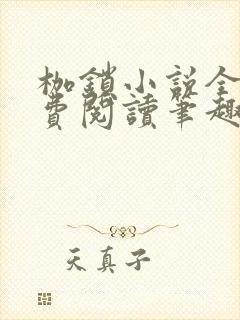 枷鎖小說全
費閱讀筆趣
天真子